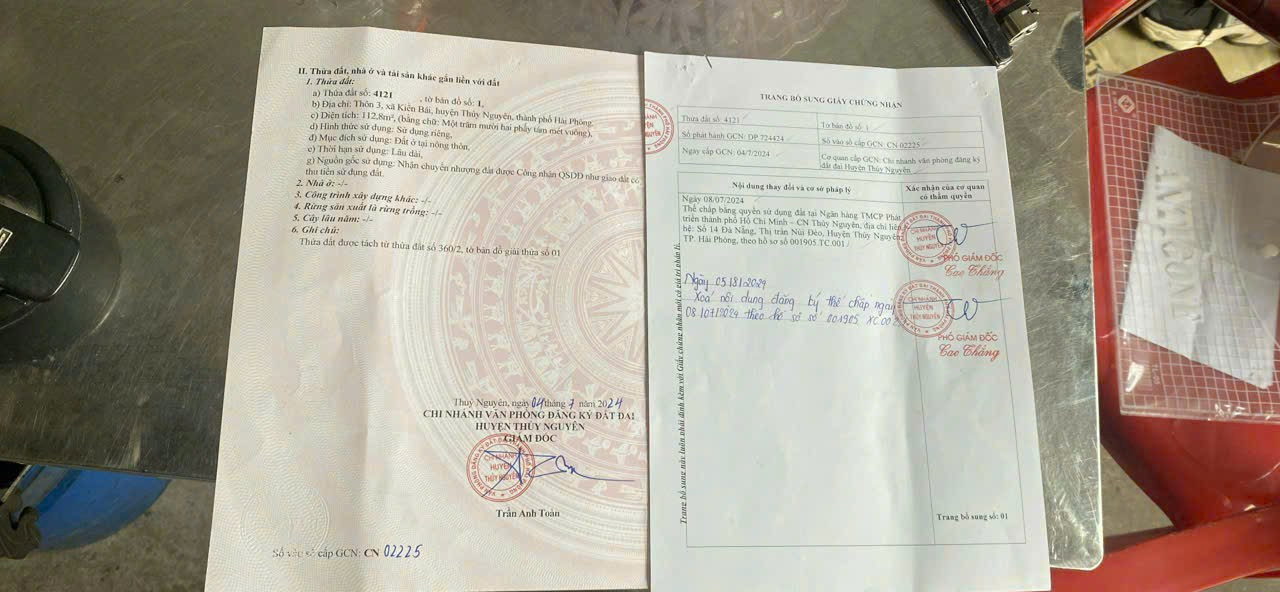 II. Thửa đất, nhà ở và tài sản khác gắn liền với đất
1. Thửa đất:
a) Thửa đất số: 4121 , tờ bản đồ số: 1,
b) Địa chỉ: Thôn 3, xã Kiền Bái, huyện Thủy Nguyên, thành phố Hải Phòng.
c) Diện tích: 112,8m², (bằng chữ: Một trăm mười hai phẩy tám mét vuông),
d) Hình thức sử dụng: Sử dụng riêng,
đ) Mục đích sử dụng: Đất ở tại nông thôn,
e) Thời hạn sử dụng: Lâu dài,
g) Nguồn gốc sử dụng: Nhận chuyển nhượng đất được Công nhận QSDĐ như giao đất có
thu tiền sử dụng đất.
2. Nhà ở: -/-
3. Công trình xây dựng khác: -/-
4. Rừng sản xuất là rừng trồng: -/-
5. Cây lâu năm: -/-
6. Ghi chú:
Thửa đất được tách từ thửa đất số 360/2, tờ bản đồ giải thửa số 01
Thuỷ Nguyên, ngày 04 tháng 7 năm 2024
CHI NHÁNH VĂN PHÒNG ĐĂNG KÝ ĐẤT ĐAI
HUYỆN THỦY NGUYÊN
GIÁM ĐỐC
CHI NHÁNH
HUYỆN
THỦY NGUYÊN
Trần Anh Toàn
Số vào sổ cấp GCN: CN 02225
TRANG BỔ SUNG GIẤY CHỨNG NHẬN
Thửa đất số: 4121
Tờ bản đồ số: 1
Số phát hành GCN: DP 724424
Số vào sổ cấp GCN: CN 02225
Ngày cấp GCN: 04/7/2024
Cơ quan cấp GCN: Chi nhánh văn phòng đăng ký
đất đai Huyện Thủy Nguyên
Nội dung thay đổi và cơ sở pháp lý
Xác nhận của cơ quan
có thẩm quyền
Ngày 08/07/2024
Thế chấp bằng quyền sử dụng đất tại Ngân hàng TMCP Phát
triển thành phố Hồ Chí Minh – CN Thủy Nguyên, địa chỉ liên
hệ: Số 14 Đà Nẵng, Thị trấn Núi Đèo, Huyện Thủy Nguyên,
TP. Hải Phòng, theo hồ sơ số 001905.TC.001
CHI NHÁNH
HUYỆN
THỦY NGUYÊN
PHÓ GIÁM ĐỐC
Cao Thắng
Ngày 05.18.1.2024
Xoá nội dung đăng ký thế chấp ngày
08.10712024 theo hồ sơ số 001905 XC 00
CHI NHÁNH
HUYỆN
THỦY NGUYÊN
PHÓ GIÁM ĐỐC
Cao Thắng
Trang bổ sung này luôn phải đính kèm với Giấy chứng nhận mới có giá trị pháp lý.
Trang bổ sung số: 01